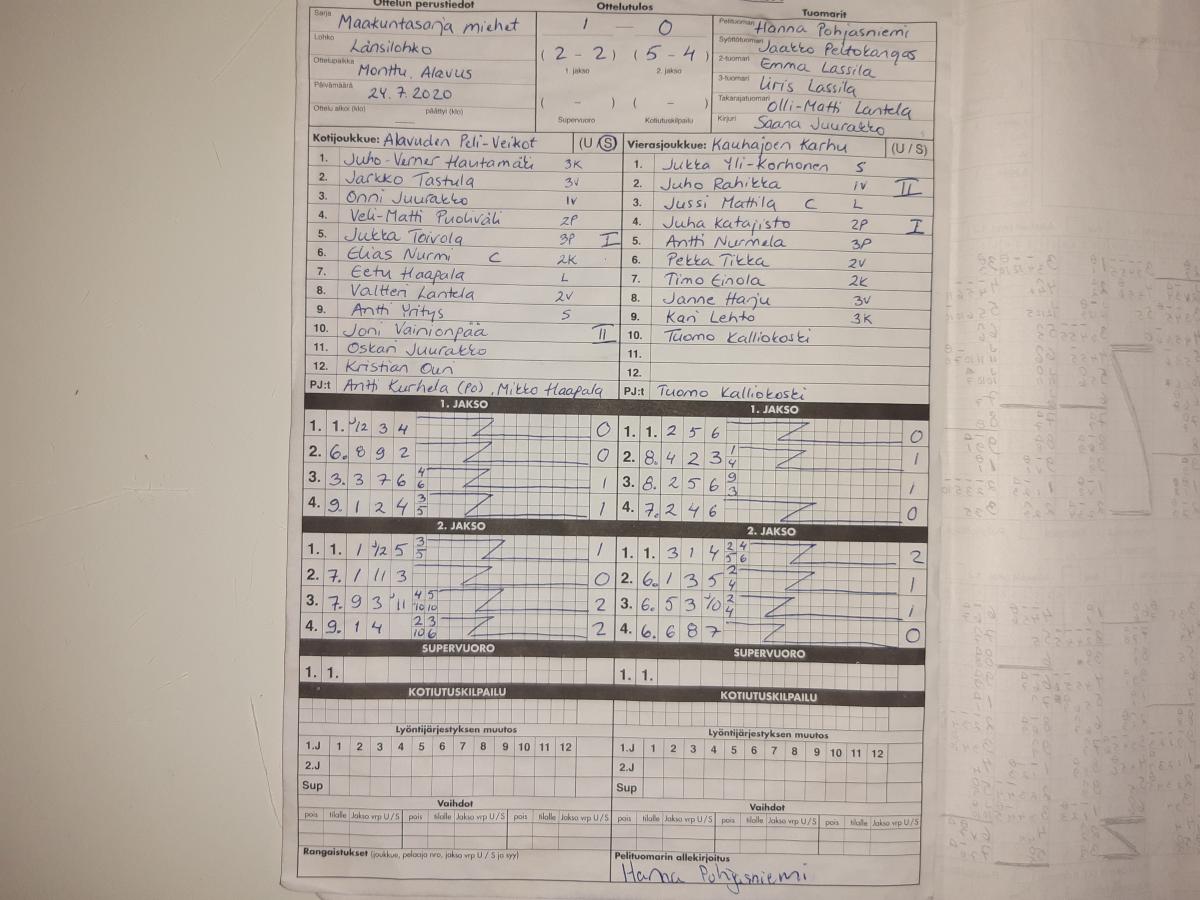 Ottelun perustiedot
Ottelutulos
Tuomarit
Sarja Maakuntasarja miehet
Lohko Länsilohko
Ottelupaikka Monttu, Alavus
Päivämäärä 24.7.2020
Ottelu alkoi (klo) — päättyi (klo)
1 — 0
(2 - 2) (5 - 4)
1. jakso 2. jakso
( - ) ( - )
Supervuoro Kotiutuskilpailu
Pelituomari Hanna Pohjasniemi
Syöttötuomari Jaakko Peltokangas
2-tuomari Emma Lassila
3-tuomari Iiris Lassila
Takarajatuomari Olli-Matti Lantela
Kirjuri Saana Juurakko
Kotijoukkue: Alavuden Peli-Veikot (U/S)
1. Juho-Verner Hautamäki 3K
2. Jarkko Tastula 3V
3. Onni Juurakko 1V
4. Veli-Matti Puoliväli 2P
5. Jukka Toivola 3P I
6. Elias Nurmi C 2K
7. Eetu Haapala L
8. Valtteri Lantela 2V
9. Antti Yritys S
10. Joni Vainionpää II
11. Oskari Juurakko
12. Kristian Ouri
PJ:t Antti Kurhela (PO), Mikko Haapala
Vierasjoukkue: Kauhajoen Karhu (U/S)
1. Jukka Yli-Korhonen S
2. Juho Rahikka 1V II
3. Jussi Mattila C L
4. Juha Katajisto 2P I
5. Antti Nurmela 3P
6. Pekka Tikka 2V
7. Timo Einola 2K
8. Janne Harju 3V
9. Kari Lehto 3K
10. Tuomo Kalliokoski
11.
12.
PJ:t Tuomo Kalliokoski
1. JAKSO
1. 1. J/12 3 4 0
2. 6. 8 9 2 0
3. 3. 3 7 6 4/6 1
4. 9. 1 2 4 3/5 1
2. JAKSO
1. 1. 1 J/12 5 3/5 1
2. 7. 1 11 3 0
3. 7. 9 3 J/11 4/10 5/10 2
4. 9. 1 4 2/10 3/6 2
SUPERVUORO
1. 1.
KOTIUTUSKILPAILU
1. JAKSO
1. 1. 2 5 6 0
2. 8. 4 2 3 1/4 1
3. 8. 2 5 6 9/3 1
4. 7. 2 4 6 0
2. JAKSO
1. 1. 3 1 4 2/5 4/6 2
2. 6. 1 3 5 2/4 1
3. 6. 5 3 J/10 2/4 1
4. 6. 6 8 7 0
SUPERVUORO
1. 1.
KOTIUTUSKILPAILU
Lyöntijärjestyksen muutos
1.J 1 2 3 4 5 6 7 8 9 10 11 12
2.J
Sup
Lyöntijärjestyksen muutos
1.J 1 2 3 4 5 6 7 8 9 10 11 12
2.J
Sup
Vaihdot
pois tilalle Jakso vrp U/S pois tilalle Jakso vrp U/S pois tilalle Jakso vrp U/S
Vaihdot
pois tilalle Jakso vrp U/S pois tilalle Jakso vrp U/S pois tilalle Jakso vrp U/S
Rangaistukset (joukkue, pelaaja nro, jakso vrp U / S ja syy)
Pelituomarin allekirjoitus
Hanna Pohjasniemi